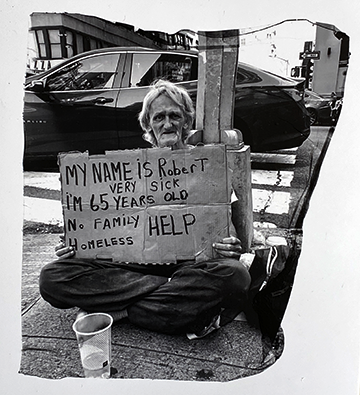 MY NAME IS RobERT
VERY SICK
I'M 65 YEARS OLD
No FAMILY HELP
HoMELESS